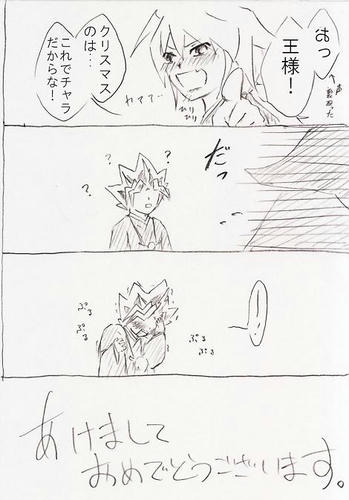 はっ
王様！
声
裏返った
クリスマス
のは…
これでチャラ
だからな！
ひり
ひり
だっ
？
？
？
…！
ぷる
ぷる
ぷる
ぷる
あけまして
おめでとうございます。